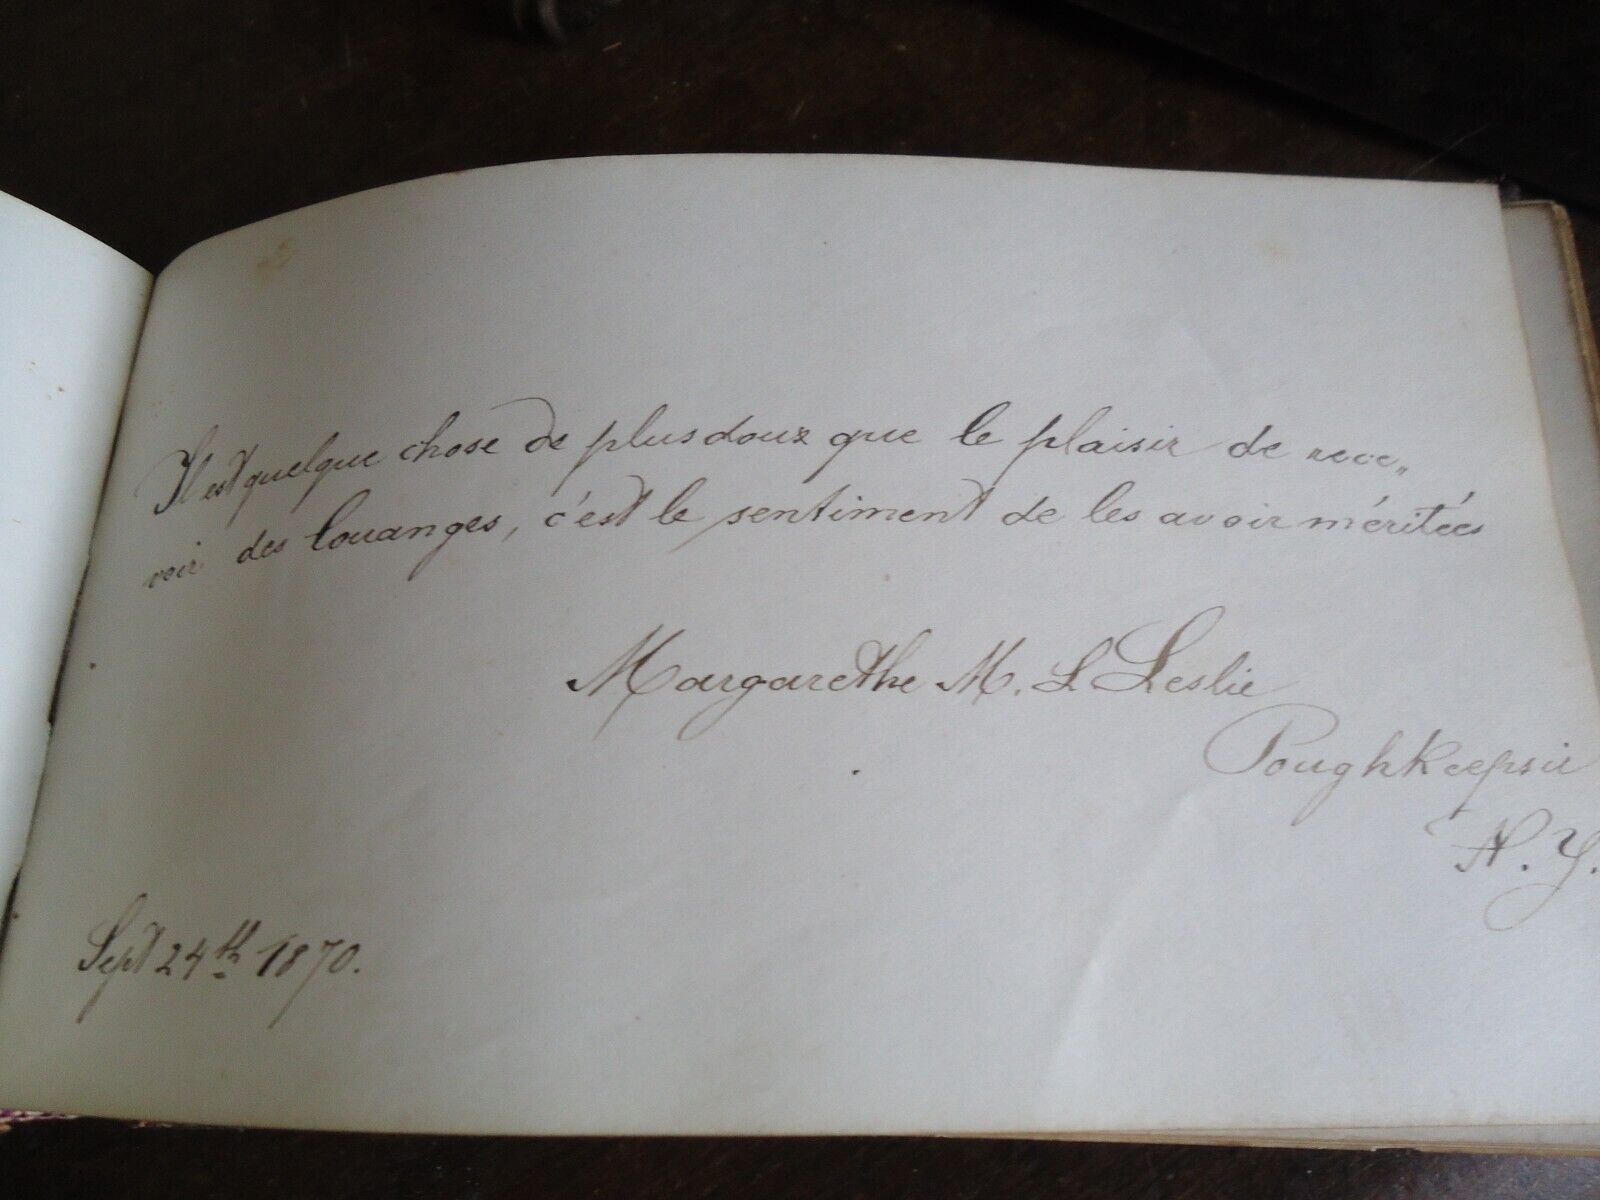 Il est quelque chose de plus doux que le plaisir de rece„
voir des louanges, c'est le sentiment de les avoir méritées
Margarethe M. L Leslie
Poughkeepsie
N. Y.
Sept 24th 1870.